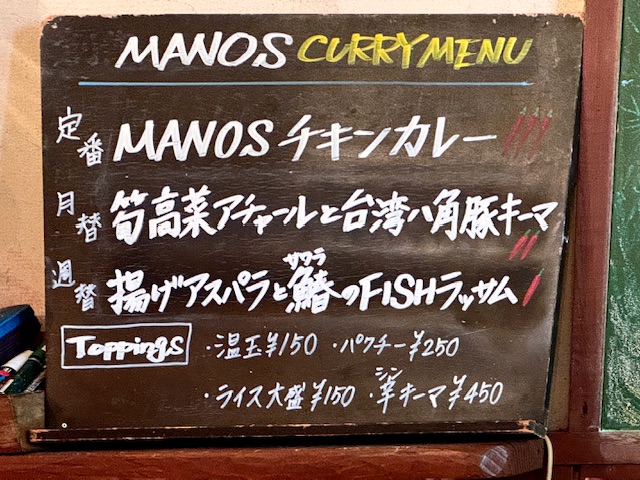 MANOS CURRY MENU
定番 MANOS チキンカレー
月替 筍高菜アチャールと台湾八角豚キーマ
週替 揚げアスパラと鰆のFISHラッサム
サワラ
Toppings ・温玉¥150 ・パクチー¥250
シン
・ライス大盛¥150 ・キーマ¥450